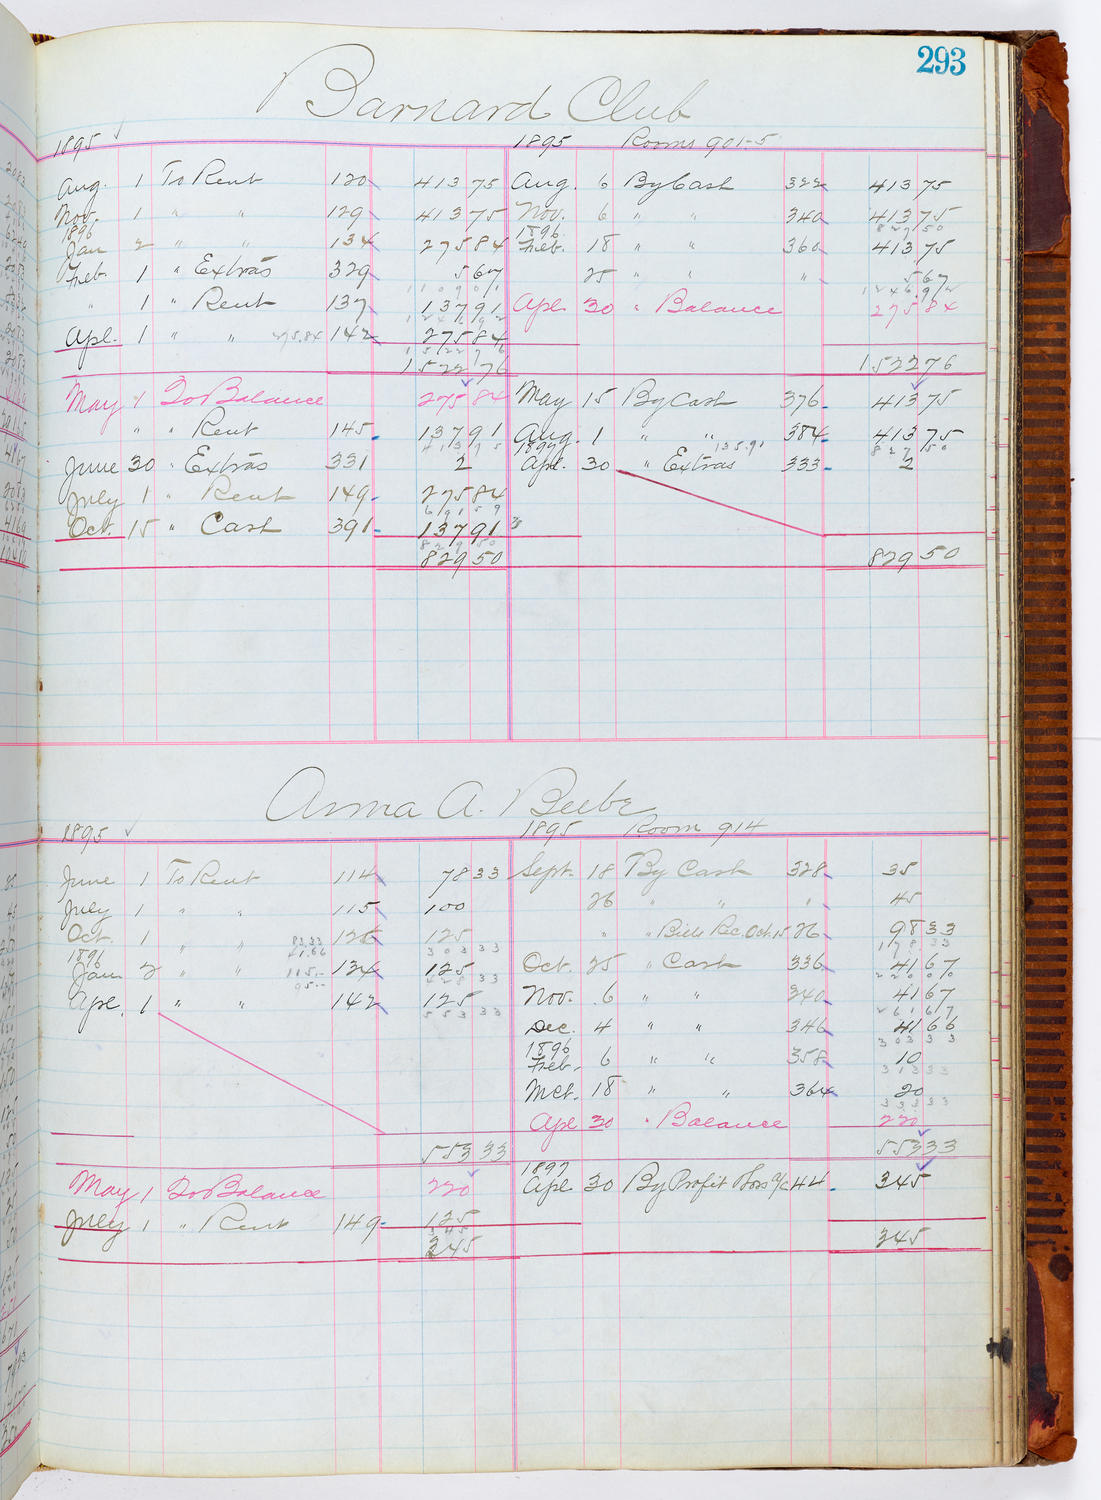 293
Barnard Club
1895 1895 Rooms 901-5
Aug. 1 To Rent 120 413 75 Aug. 6 By Cash 322 413 75
Nov. 1 " " 129 413 75 Nov. 6 " " 340 413 75
827 50
1896 1896
Jan 2 " " 134 275 84 Feb. 18 " " 360 413 75
Feb. 1 " Extras 329 5 67 25 " " " 5 67
1109 01 1246 92
" 1 " Rent 137 137 91 Apl. 30 " Balance 275 84
1246 92
Apl. 1 " " 275.84 142 275 84
1522 76
1522 76 1522 76
May 1 To Balance 275 84 May 15 By Cash 376 413 75
" " " Rent 145 137 91 Aug. 1 " " 384 413 75
413 75 1897 135.91 827 50
June 30 " Extras 331 2 Apl. 30 " Extras 333 2
July 1 " Rent 149 275 84
691 59
Oct. 15 " Cash 391 137 91
829 50
829 50 829 50
Anna A. Beebe
1895 1895 Room 914
June 1 To Rent 114 78 33 Sept. 18 By Cash 328 35
July 1 " " 115 100 26 " " " 45
Oct. 1 " " 83.33 126 125 " " Bills Rec. Oct. 15 26 98 33
41.66 303 33 178 33
1896
Jan 2 " " 115.- 134 125 Oct. 25 " Cash 336 41 67
95.- 428 33 220 00
Apl. 1 " " 142 125 Nov. 6 " " 340 41 67
553 33 261 67
Dec. 4 " " 346 41 66
303 33
1896
Feb. 6 " " 358 10
313 33
Mch. 18 " " 364 20
333 33
Apl 30 " Balance 220
553 33 553 33
1897
May 1 To Balance 220 Apl 30 By Profit & Loss a/c 44 345
July 1 " Rent 149 125
345
345 345